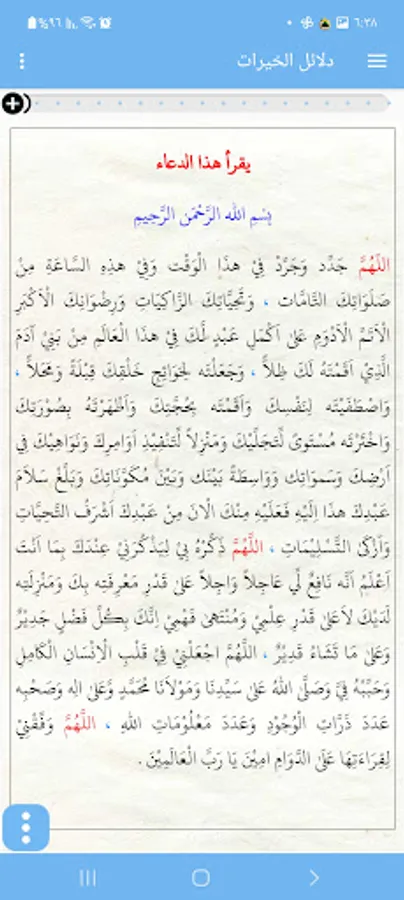 ٦:٢٨
%٩٦
دلائل الخيرات
يقرأ هذا الدعاء
بِسْمِ اللهِ الرَّحْمَنِ الرَّحِيمِ
اَللّٰهُمَّ جَدِّد وَجَرِّدْ فِيْ هٰذَا الْوَقْت وَفِيْ هٰذِهِ السَّاعَةِ مِنْ
صَلَوَاتِكَ التَّامَّات ، وَتَحِيَّاتِكَ الزَّاكِيَاتِ وَرِضْوَانِكَ الْاَكْبَرِ
الْاَتَمِّ الْاَدْوَمِ عَلىٰ اَكْمَلِ عَبْدٍ لَّكَ فِيْ هٰذَا الْعَالَمِ مِنْ بَنِيْ آدَمَ
الَّذِيْ اَقَمْتَهُ لَكَ ظِلاًّ ، وَجَعَلْتَه لِحَوَائِجِ خَلْقِكَ قِبْلَةً وَمَحَلاًّ ،
وَاصْطَفَيْتَه لِنَفْسِكَ وَاَقَمْتَه بِحُجَّتِكَ وَاَظْهَرْتَهُ بِصُوْرَتِكَ
وَاخْتَرْتَه مُسْتَوىً لِتَجَلِّيْكَ وَمَنْزِلاً لِّتَنْفِيْذِ اَوَامِرِكَ وَنَوَاهِيْكَ فِي
اَرْضِكَ وَسَمَوَاتِكَ وَوَاسِطَةً بَيْنَك وَبَيْنَ مُكَوَّنَاتِكَ وَبَلِّغْ سَلَامَ
عَبْدِكَ هٰذَا اِلَيْهِ فَعَلَيْهِ مِنْكَ الْانَ مِنْ عَبْدِكَ اَشْرَفُ التَّحِيَّاتِ
وَاَزْكَى التَّسْلِيْمَاتِ ، اَللّٰهُمَّ ذَكِّرْهُ بِيْ لِيَذْكُرَنِيْ عِنْدَكَ بِمَا اَنْتَ
اَعْلَمُ اَنَّه نَافِعٌ لِّي عَاجِلاً وَاجِلاً عَلىٰ قَدْرِ مَعْرِفَتِه بِكَ وَمَنْزِلَتِه
لَدَيْكَ لَاعَلىٰ قَدْرِ عِلْمِيْ وَمُنْتَهىٰ فَهْمِيْ اِنَّكَ بِكُلِّ فَضْلٍ جَدِيْرٌ
وَعَلىٰ مَا تَشَاءُ قَدِيْرٌ ، اَللّٰهُمَّ اجْعَلْنِيْ فِيْ قَلْبِ الْاِنْسَانِ الْكَامِلِ
وَحَبِّبْهُ فِيَّ وَصَلَّى اللهُ عَلىٰ سَيِّدِنَا وَمَوْلَانَا مُحَمَّدٍ وَّعَلىٰ اٰلِه وَصَحْبِه
عَدَدَ ذَرَّاتِ الْوُجُوْدِ وَعَدَدَ مَعْلُوْمَاتِ اللهِ ، اَللّٰهُمَّ وَفِّقْنِيْ
لِقِرَاءَتِهَا عَلَى الدَّوَامِ اٰمِيْنَ يَا رَبَّ الْعَالَمِيْنَ .